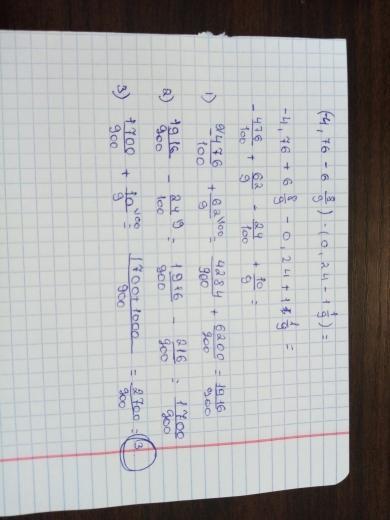 (-4,76 - 6 8/9) - (0,24 - 1 1/9) =
-4,76 + 6 8/9 - 0,24 + 1 1/9 =
- 476/100 + 62/9 - 24/100 + 10/9 =
1) 9\ - 476/100 + 62/9 \100 = 4284/900 + 6200/900 = 1916/900
2) 1916/900 - 24/100 \9 = 1916/900 - 216/900 = 1700/900
3) 1700/900 + 10/9 \100 = 1700+1000/900 = 2700/900 = 3